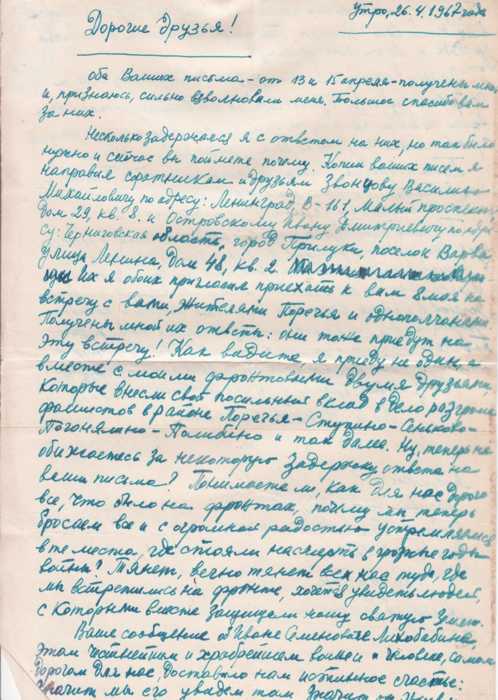 Утро, 26.4.1967 года
Дорогие друзья!
оба Ваших письма - от 13 и 15 апреля - получены мною
и, признаюсь, сильно взволновали меня. Большое спасибо вам
за них.
Несколько задержался я с ответом на них, но так было
нужно и сейчас вы поймете почему. Копии ваших писем я
направил соратникам и друзьям Звонцову Василию
Михайловичу по адресу: Ленинград, В-161, Малый проспект,
дом 29, кв. 8. и Островскому Ивану Дмитриевичу по адре
су: Черниговская область, город Прилуки, поселок Варва
улица Ленина, дом 48, кв. 2.
их я обоих пригласил приехать к вам 8 мая на
встречу с вами, жителями Поречья и однополчанами
Получены мной их ответы: они тоже приедут на
эту встречу! Как видите, я приеду не один, а
вместе с моими фронтовыми двумя друзьями,
которые внесли свой посильный вклад в дело разгрома
фашистов в районе Поречья - Ступино - Сеньково -
Погонялино - Полибино и так далее. Ну, теперь не
обижаетесь за некоторую задержку ответа на
ваши письма? Понимаете ли, как для нас дорого
все, что было на фронтах, почему мы теперь
бросаем все и с огромной радостью устремляемся
в те места, где стояли насмерть в грозные годы
войны? Тянет, вечно тянет всех нас туда, где
мы встретились на фронте, хочется увидеть людей,
с которыми вместе защищали нашу святую землю.
Ваше сообщение об Иване Семеновиче Лихобабине,
этом честнейшем и храбрейшем воине и человеке, самом
дорогом для нас, доставило нам истинное счастье:
значит мы его увидем там.